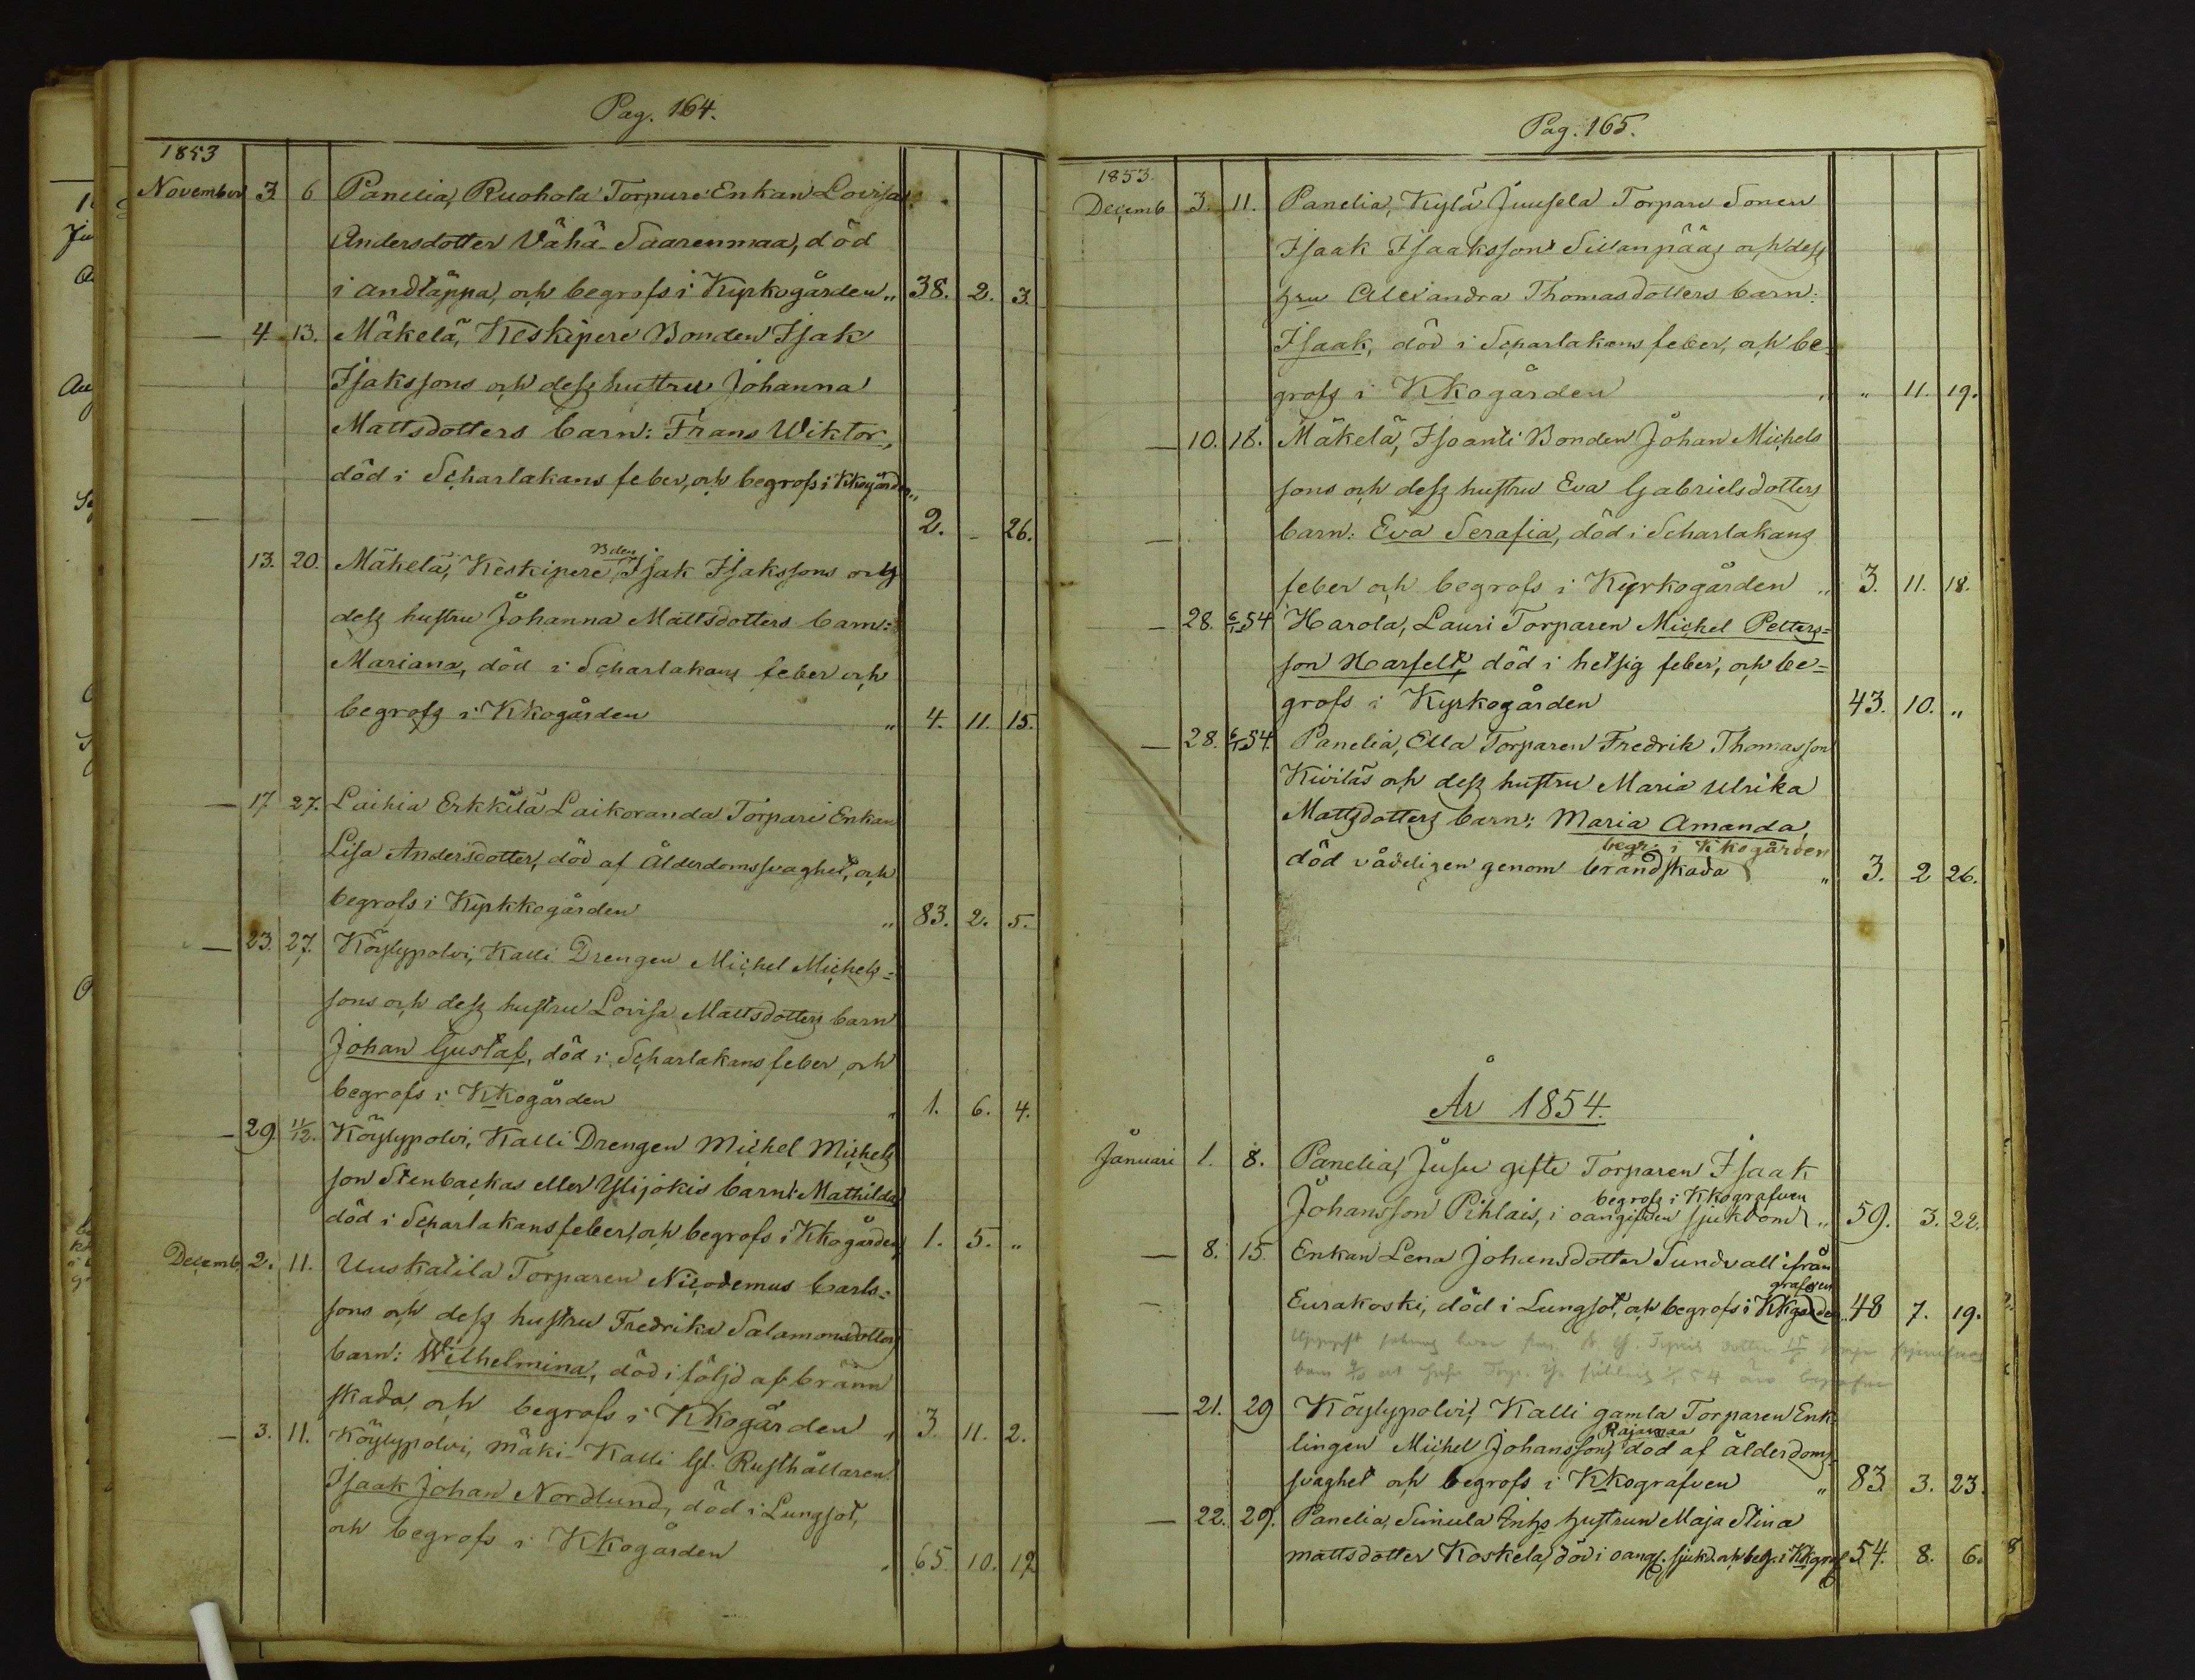 Pag. 164.
1853
November 3. 6 Panelia, Ruohola Torpare Enkan Lovisa
Andersdotter Vähä-Saarenmaa, död
i andtäppa, och begrofs i Kyrkogården „ 38. 2. 3.
— 4. 13. Mäkelä, Keskipere Bonden Isak
Isakssons och dess hustru Johanna
Mattsdotters barn: Frans Wiktor,
död i Scharlakans feber, och begrofs i Kkogården „
2. - 26.
13. 20. Mäkelä, Keskipere Bden Isak Isakssons och
dess hustru Johanna Mattsdotters barn:
Mariana, död i Scharlakans feber och
begrofs i Kkogården „ 4. 11. 15.
— 17 27. Laihia Erkkilä Laikoranda Torpare Enkan
Lisa Andersdotter, död af Ålderdomssvaghet, och
begrofs i Kyrkkogården „ 83. 2. 5.
— 23. 27. Köylypolvi, Kalli Drengen Michel Michels=
sons och dess hustru Lovisa Mattsdotters barn
Johan Gustaf, död i Scharlakans feber, och
begrofs i Kkogården „ 1. 6. 4.
— 29. 11/12. Köylypolvi, Kalli Drengen Michel Michels
son Stenbackas eller Ylijokis barn: Mathilda
död i Scharlakans feber, och begrofs i Kkogården 1. 5. „
Decemb. 2. 11. Uuskatila Torparen Nicodemus Carls=
sons och dess hustru Fredrika Salamonsdotters
barn: Wilhelmina, död i följd af bränn
skada, och begrofs i Kkogården „ 3 11. 2.
— 3. 11. Köylypolvi, Mäki-Kalli Gl. Rusthållaren
Isaak Johan Nordlund, död i Lungsot,
och begrofs i Kkogården „ 65. 10. 12
Pag. 165.
1853.
Decemb 3. 11. Panelia, Kylä Juusela Torpare Sonen
Isaak Isaakssons Sillanpääs och dess
hru Alexandra Thomasdotters barn:
Isaak, död i Scharlakans feber, och be=
grofs i Kkogården „ „ 11. 19.
— 10. 18. Mäkelä, Isoanti Bonden Johan Michels
sons och dess hustru Eva Gabrielsdotters
barn: Eva Serafia, död i Scharlakans
feber och begrofs i Kyrkogården „ 3. 11. 18.
— 28. 6/1 54 Harola, Lauri Torparen Michel Petters=
son Harfelt, död i hetsig feber, och be=
grofs i Kyrkogården 43. 10. „
— 28. 6/1 54. Panelia, Ella Torparen Fredrik Thomasson
Kiviläs och dess hustru Maria Ulrika
Mattsdotters barn: Maria Amanda,
begr. i Kkogården
död vådeligen genom brandskada „ 3. 2 26.
År 1854.
Januari 1. 8. Panelia, Jusu gifte Torparen Isaak
begrofs i Kkografven
Johansson Pihlais, i oangifven sjukdom „ 59. 3. 22.
— 8. 15. Enkan Lena Johansdotter Sundvall ifrån
grafven
Eurakoski, död i Lungsot, och begrofs i Kkgården „ 48 7. 19.
— 21. 29 Köylypolvi, Kalli gamla Torparen Enk=
Rajamaa
lingen Michel Johansson, död af ålderdoms=
svaghet och begrofs i Kkografven „ 83. 3. 23.
— 22. 29. Panelia, Simula Inhs hustrun Maja Stina
Mattsdotter Koskela, död i oangf. sjukd. och begr. i Kkgraf 54. 8. 6.